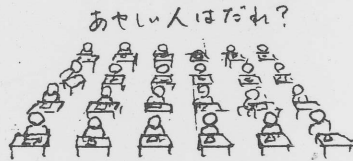 あやしい人はだれ?